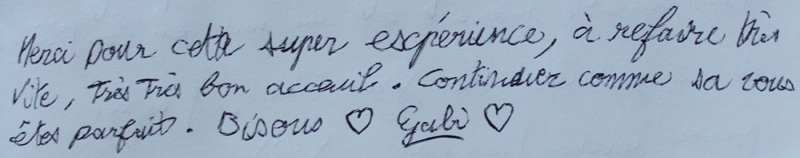 Merci pour cette super escpérience, à refaire très
vite, très très bon acceuil. Continuer comme sa vous
êtes parfait. Bisous ♡ Gabi ♡